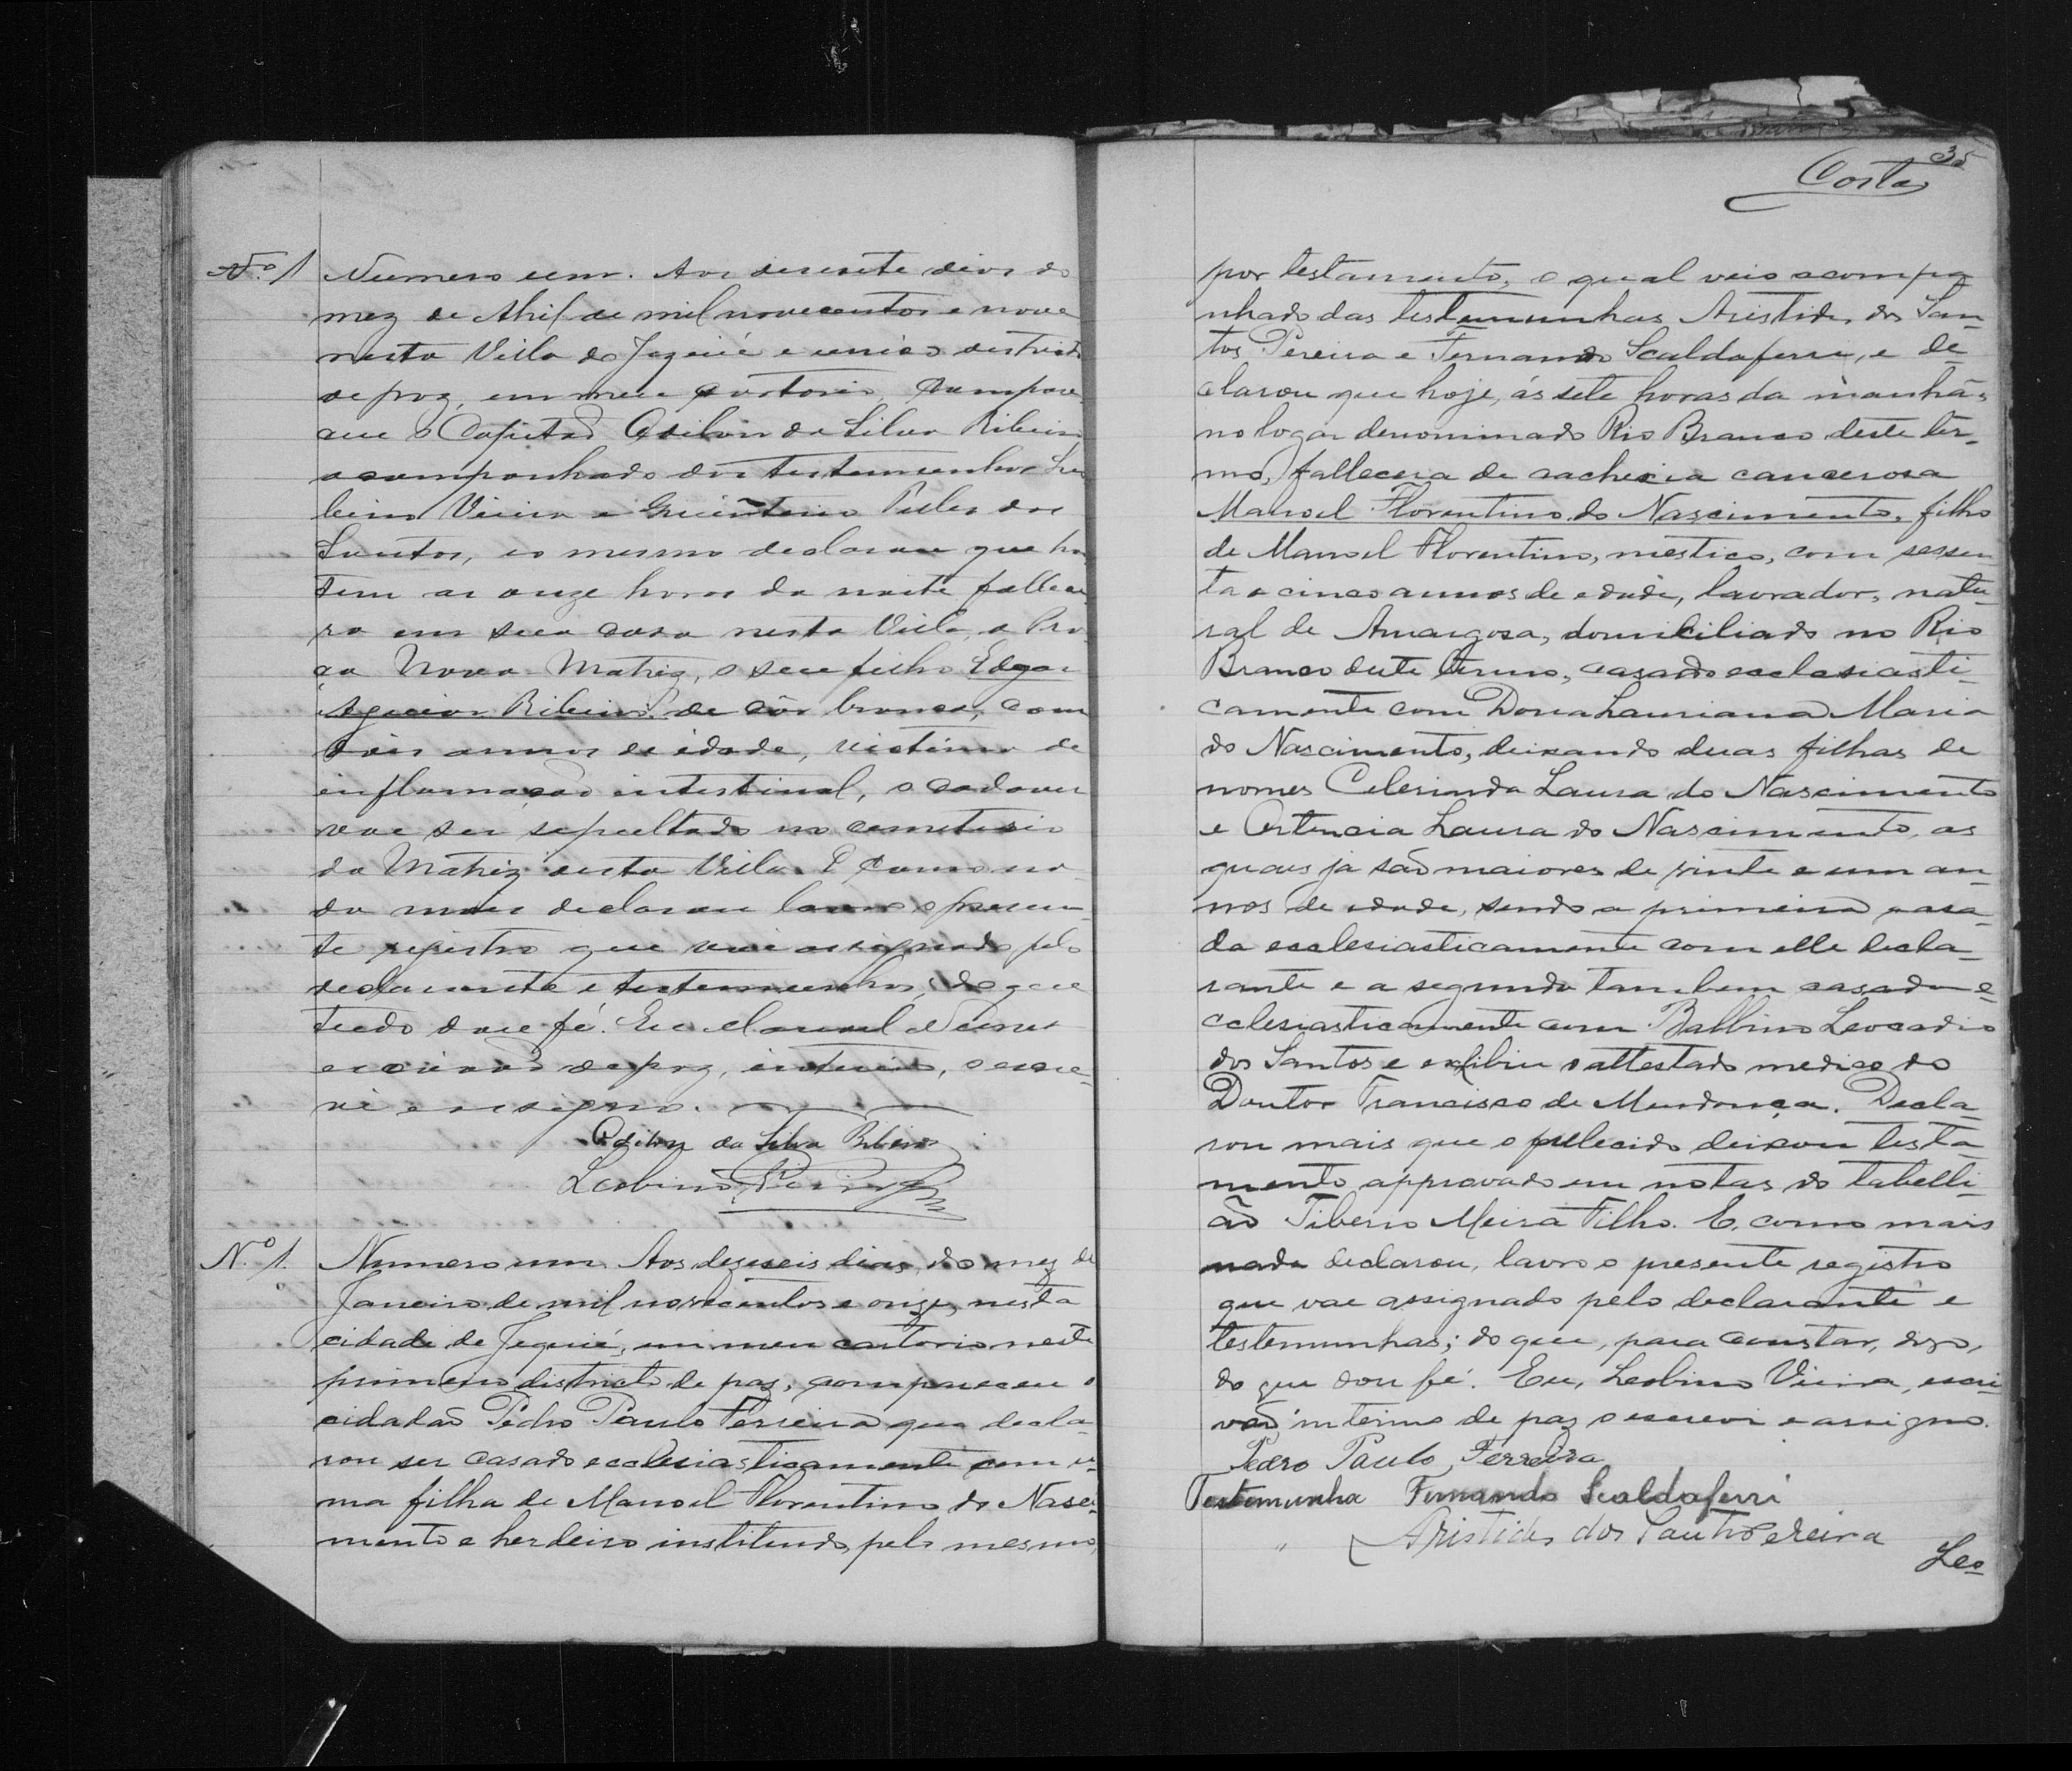 Nº 1
Numero um. Aos desesete dias do
mez de Abril de mil novecentos e nove
nesta Villa de Jequié e unico districto
de paz, em meu cartorio, compare
ceu o Capitão Odilon da Silva Ribeiro
acompanhado das testemunhas Les
bino Vieira e Guintino Telles dos
Santos, e o mesmo declarou que hon
tem as onze horas da noite fallece
ra em sua casa nesta Villa, a Pra
ça Nova Matriz, o seu filho Edgar
Aguiar Ribeiro de côr branca, com
dois annos de idade, victima de
inflamação intestinal, o cadaver
vae ser sepultado no cemiterio
da Matriz desta Villa. E como na
da mais declarou lavro o presen
te registro que vai assignado pelo
declarante e testemunhas, do que
tudo dou fé. Eu Manoel Nunes
escrivão de paz, interino, o escre-
vi e assigno.
Odilon da Silva Ribeiro
Lesbino Vieira
Nº 1.
Numero um. Aos dezeseis dias do mez de
Janeiro de mil novecentos e onze, nesta
cidade de Jequié, em meu cartorio neste
primeiro districto de paz, compareceu o
cidadão Pedro Paulo Ferreira que decla-
rou ser casado ecclesiasticamente com u-
ma filha de Manoel Florentino do Nasci-
mento e herdeiro instituido pelo mesmo,
35
Costa
por testamento, o qual veio acompa
nhado das testemunhas Aristides dos San-
tos Pereira e Fernando Scaldaferri, e de-
clarou que hoje, ás sete horas da manhã,
no logar denominado Rio Branco deste ter-
mo, fallecera de cachexia cancerosa
Manoel Florentino do Nascimento, filho
de Manoel Florentino, mestiço, com sessen
ta e cinco annos de edade, lavrador, natu-
ral de Amargosa, domiciliado no Rio
Branco deste termo, casado ecclesiasti-
camente com Dona Lauriana Maria
do Nascimento, deixando duas filhas de
nomes Celerinda Laura do Nascimento
e Ortencia Laura do Nascimento, as
quaes ja são maiores de vinte e um an-
nos de edade, sendo a primeira casa-
da ecclesiasticamente com elle decla-
rante e a segunda tambem casada e-
cclesiasticamente com Balbino Leocadio
dos Santos e exhibiu o attestado medico do
Doutor Francisco de Mendonça. Decla-
rou mais que o fallecido deixou testa-
mento approvado em notas do tabelli-
ão Tiberio Meira Filho. E, como mais
nada declarou, lavro o presente registro
que vae assignado pelo declarante e
testemunhas; do que, para constar, digo,
do que dou fé. Eu, Lesbino Vieira, escri-
vão interino de paz o escrevi e assigno.
Pedro Paulo Ferreira
Testemunha Fernando Scaldaferri
" Aristides dos Santos Pereira
Les-